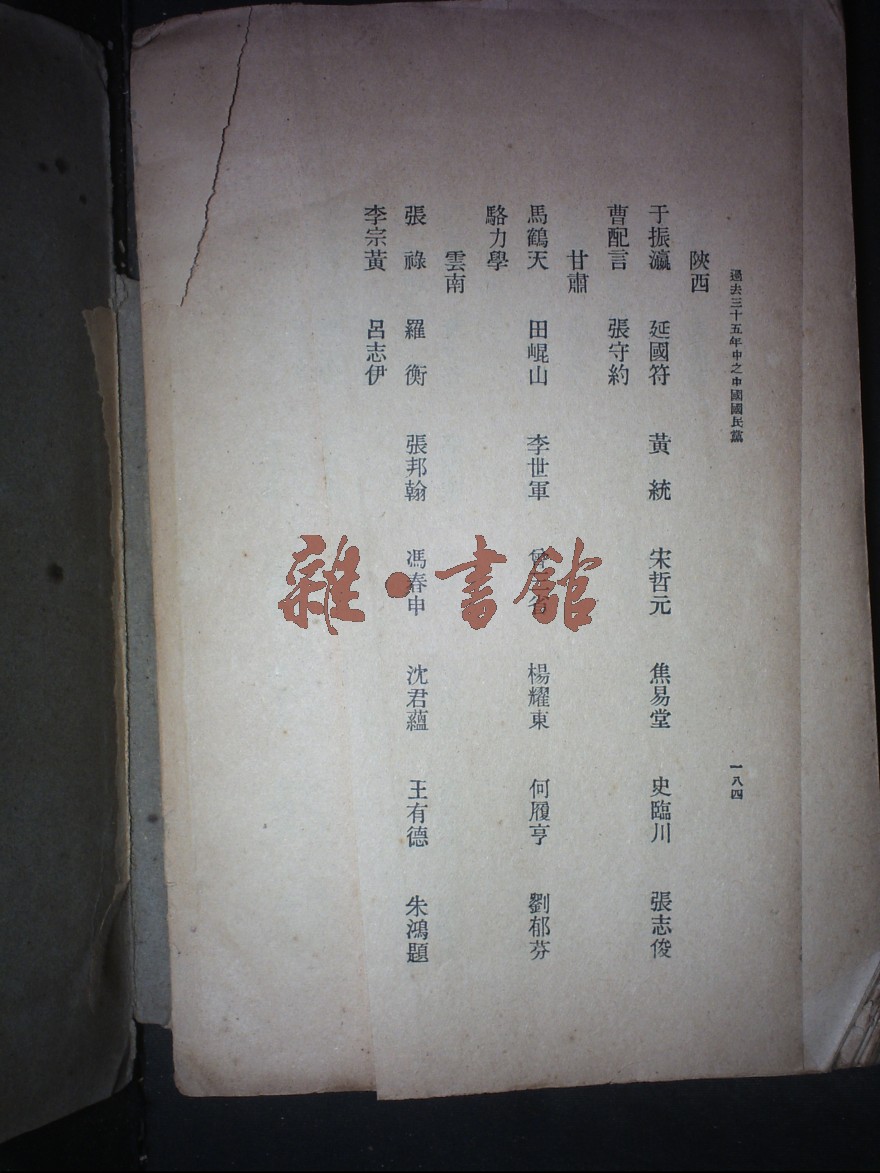 過去三十五年中之中國國民黨
一八四
陝西
于振瀛 延國符 黃統 宋哲元 焦易堂 史臨川 張志俊
曹配言 張守約
甘肅
馬鶴天 田崐山 李世軍 曾 楊耀東 何履亨 劉郁芬
駱力學
雲南
張祿 羅衡 張邦翰 馮春申 沈君蘊 王有德 朱鴻題
李宗黃 呂志伊
雜·書館